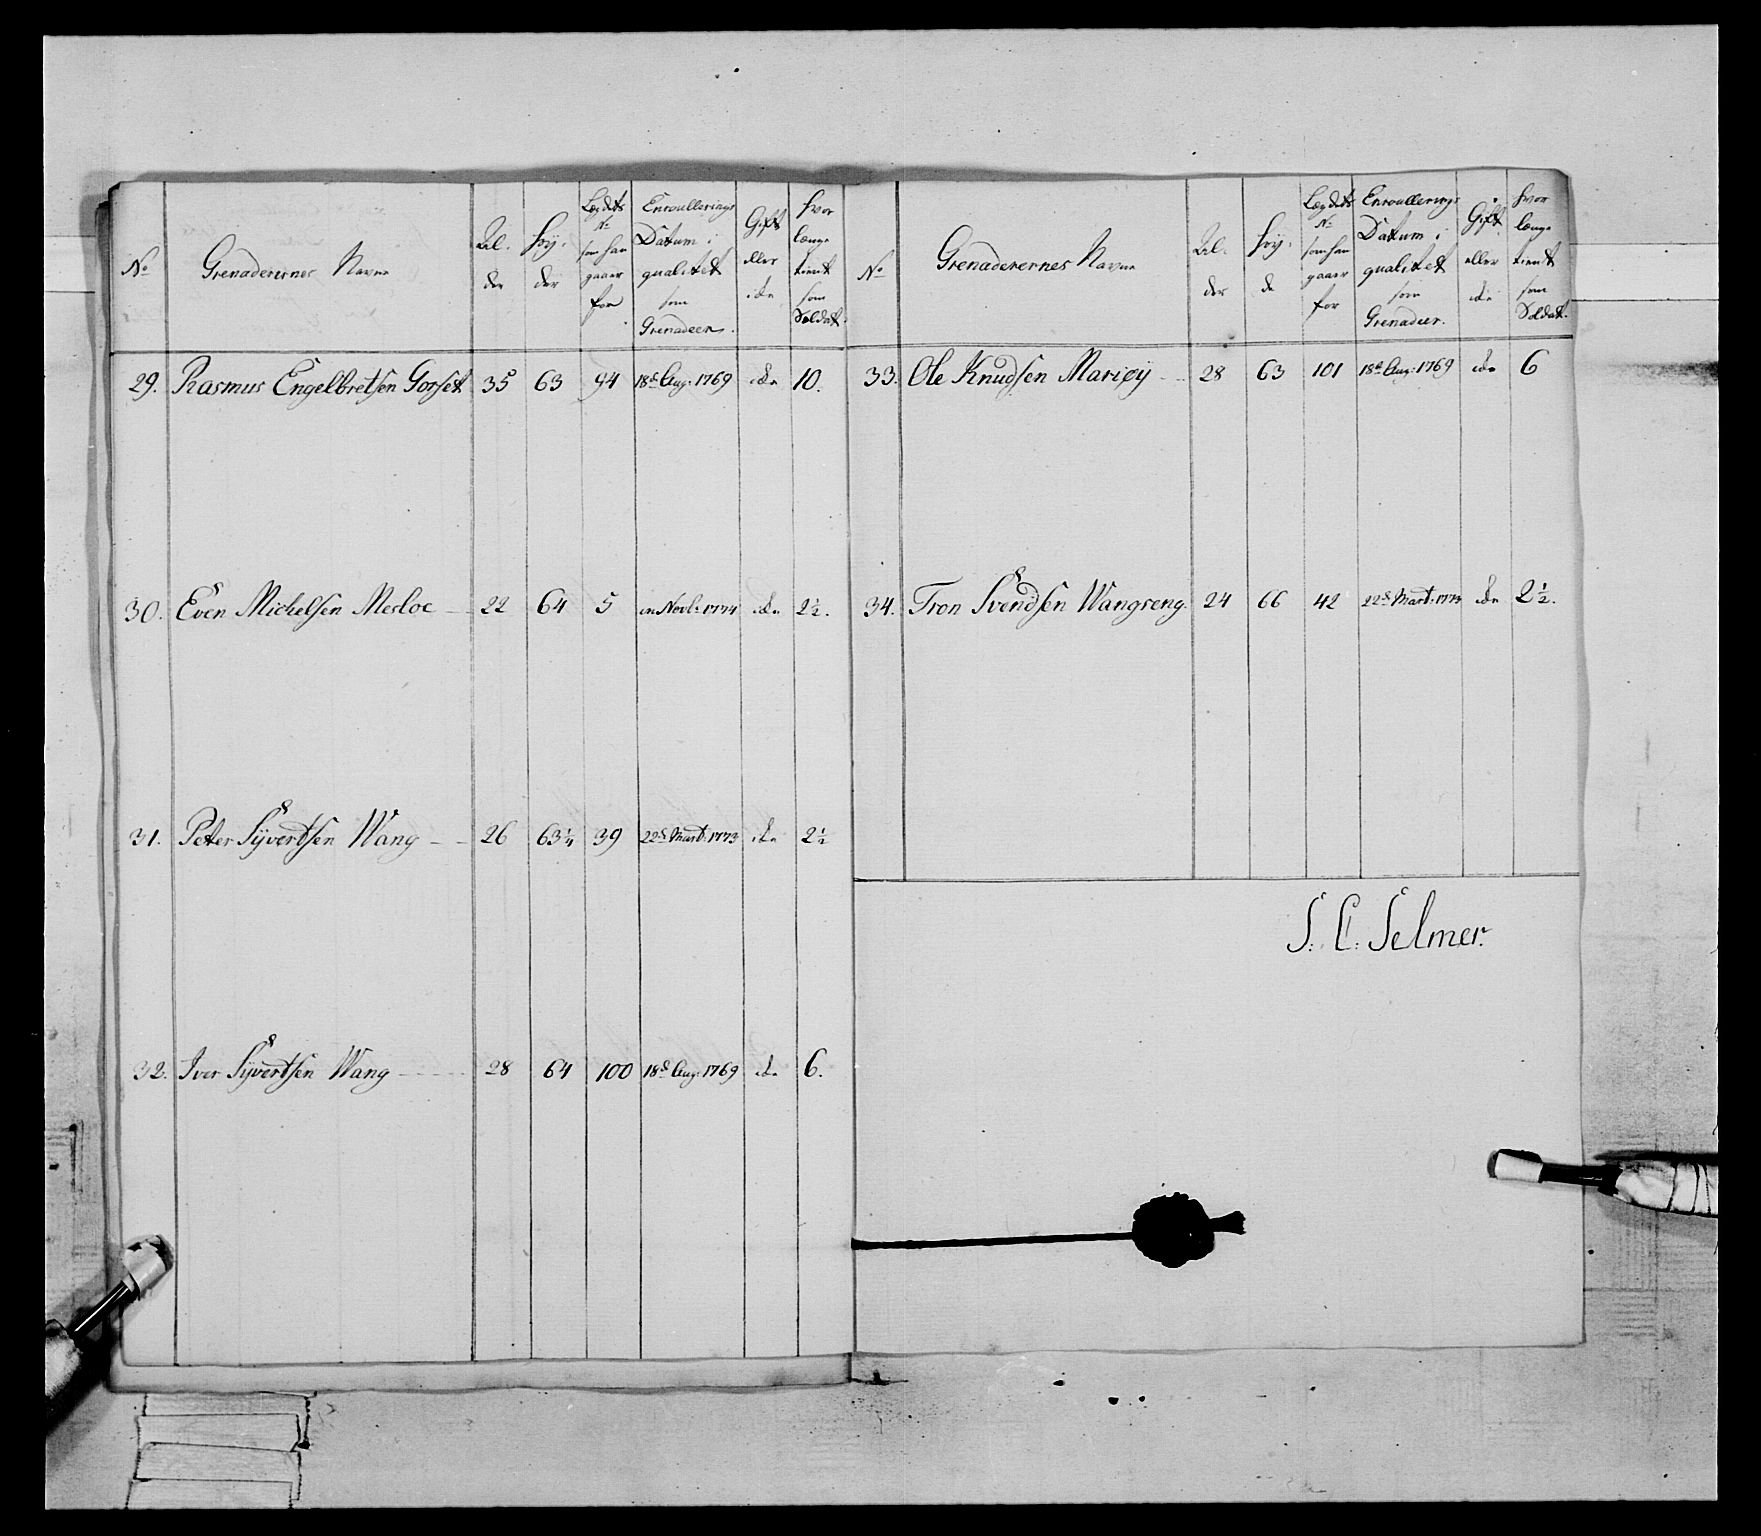 No Grenaderernes Navne Al-der Høy-der Lægdets No som han gaaer for Enroullerings Datum i qualitet som Grenadeer. Gift eller ide hvor længe tient som Soldat.
29. Rasmus Engelbretsen Gorset 35 63 94 18d Aug: 1769 ide 10.
30. Even Michelsen Mesloe 22 64 5 Novb: 1774 ide 2½.
31. Peter Syvertsen Wang 26 63¼ 39 22d Mart: 1773 ide 2½
32. Iver Syvertsen Wang 28 64 100 18d Aug: 1769 ide 6.
No Grenaderernes Navne Al-der Høy-de Lægdets No som han gaaer for Enroullerings Datum i qualitet som Grenadeer. Gift eller ide hvor længe tient som Soldat.
33. Ole Knudsen Mariøy 28 63 101 18d Aug: 1769 ide 6
34. Tron Svendsen Wangseng 24 66 42 22d Mart: 1773 ide 2½.
S: C: Selmer.